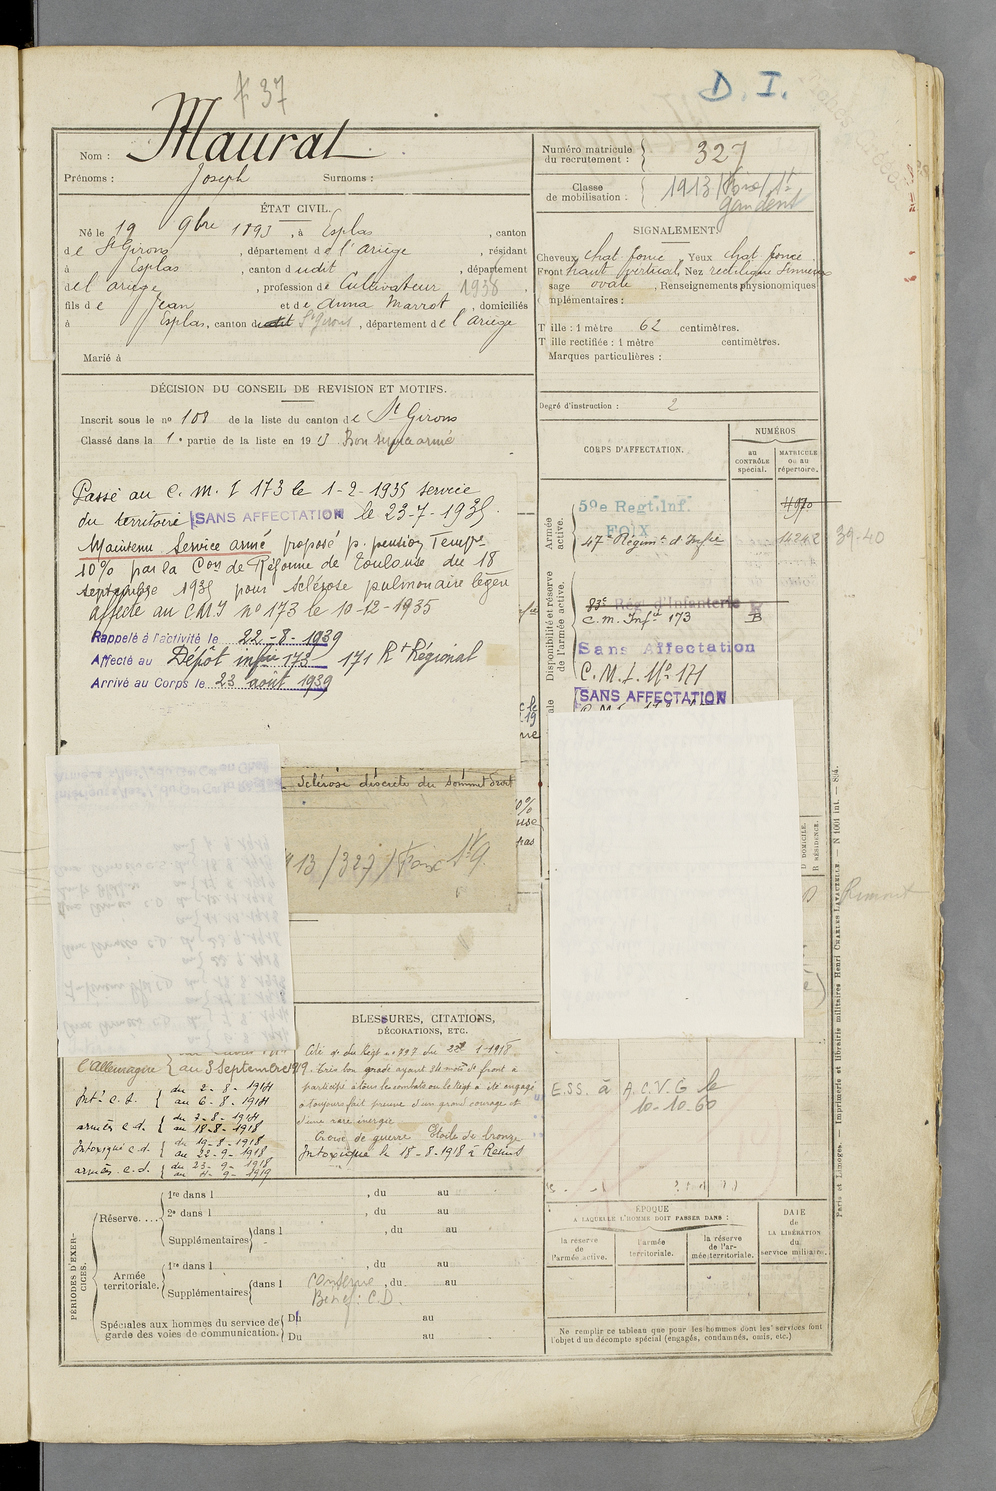 37
D. I.
Nom : Maurat
Prénoms : Joseph Surnoms :
Numéro matricule du recrutement : 327
Classe de mobilisation : 1913 / Foix / St Gaudens
ÉTAT CIVIL.
Né le 19 9bre 1893, à Esplas, canton
de St Girons, département de l'ariège, résidant
à Esplas, canton dudit, département
de l'ariège, profession de Cultivateur 1938
fils de Jean et de Anna Marrot, domiciliés
à Esplas, canton dudit St Girons, département de l'ariège
Marié à
SIGNALEMENT.
Cheveux chat foncé, Yeux chat foncé
Front haut vertical, Nez rectiligne sinueux
sage ovale, Renseignements physionomiques
mplémentaires :
T ille : 1 mètre 62 centimètres.
T ille rectifiée : 1 mètre centimètres.
Marques particulières :
Degré d'instruction : 2
DÉCISION DU CONSEIL DE REVISION ET MOTIFS.
Inscrit sous le no 108 de la liste du canton de St Girons
Classé dans la 1e partie de la liste en 1913 Bon service armé
Passé au C. M. I 173 le 1-2-1935 service
du territoire SANS AFFECTATION le 23-7-1935.
Maintenu Service armé proposé p. pension Tempre
10% par la Con de Réforme de Toulouse du 18
septembre 1935 pour sclérose pulmonaire légère
affecté au CMI no 173 le 10-12-1935
Rappelé à l'activité le 22-8-1939
Affecté au Dépôt infie 173 171 Rt Régional
Arrivé au Corps le 23 août 1939
CORPS D'AFFECTATION.
NUMÉROS
au CONTRÔLE spécial.
MATRICULE ou au répertoire.
Armée active.
59e Regt. Inf.
FOIX
47e Régimt d'Infie 14242 39-40
Disponibilité et réserve de l'armée active.
83e Rég. d'Infanterie
C.m. Infie 173 B
Sans Affectation
C.M.I. No 171
SANS AFFECTATION
sclérose discrète du sommet droit
13 / 327 / Foix St G
D DOMICILE.
R RÉSIDENCE.
Rimont
BLESSURES, CITATIONS,
DÉCORATIONS, ETC.
l'Allemagne { au 3 Septembre 1919
Int. c.d. { du 2-8-1914
au 6-8-1914
armées c.d. { du 7-8-1914
au 18-8-1918
Intoxiqué c.d. { du 19-8-1918
au 22-9-1918
armées c.d. { du 23-9-1918
au 4-9-1919
Cité o. du Régt no 797 du 28 1-1918
Très bon gradé ayant 34 mois de front a
participé à tous les combats où le Régt a été engagé
a toujours fait preuve d'un grand courage et
d'une rare énergie
Croix de guerre Etoile de bronze
Intoxiqué le 18-8-1918 à Reims
E.S.S. à A.C.V.G. le
10-10-60
PÉRIODES D'EXERCICES.
Réserve....
1re dans l , du au
2e dans l , du au
Supplémentaires dans l , du au
Armée territoriale.
1re dans l , du au
Supplémentaires dans l , du au
Conserve
Bénéf: C.D.
Spéciales aux hommes du service de garde des voies de communication.
Du au
Du au
ÉPOQUE
A LAQUELLE L'HOMME DOIT PASSER DANS :
la réserve de l'armée active.
l'armée territoriale.
la réserve de l'armée territoriale.
DATE de LA LIBÉRATION du service militaire.
Ne remplir ce tableau que pour les hommes dont les services font
l'objet d'un décompte spécial (engagés, condamnés, omis, etc.)
Paris et Limoges. — Imprimerie et librairie militaires Henri CHARLES-LAVAUZELLE. — N 1001 int. — 894.